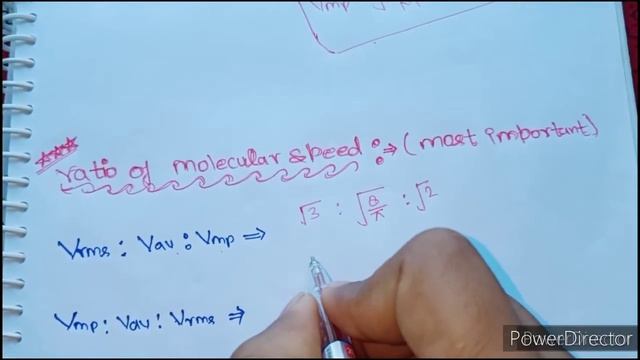 Vmp
*** ratio of molecular speed :⇒ (most important)
Vrms : Vav : Vmp ⇒ √3 : √8/π : √2
Vmp : Vav : Vrms ⇒
PowerDirector